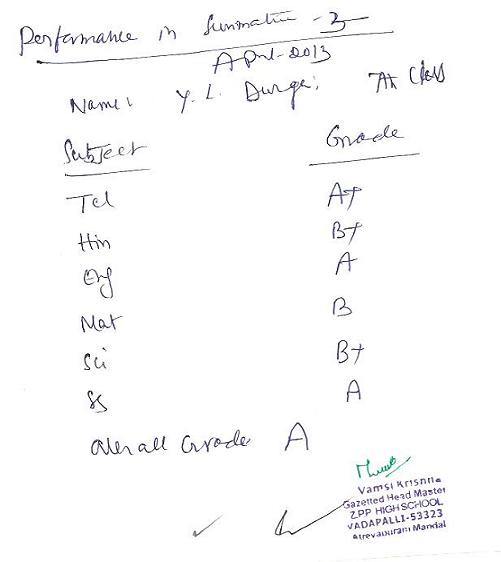 Performance in Summative - 3
April-2013
Name: Y. L. Durga: 7th Class
Subject Grade
Tel A+
Hin B+
Eng A
Mat B
Sci B+
SS A
Over all Grade A
Vamsi Krishna
Gazetted Head Master
ZPP HIGH SCHOOL
VADAPALLI-53323
Atreyapuram Mandal